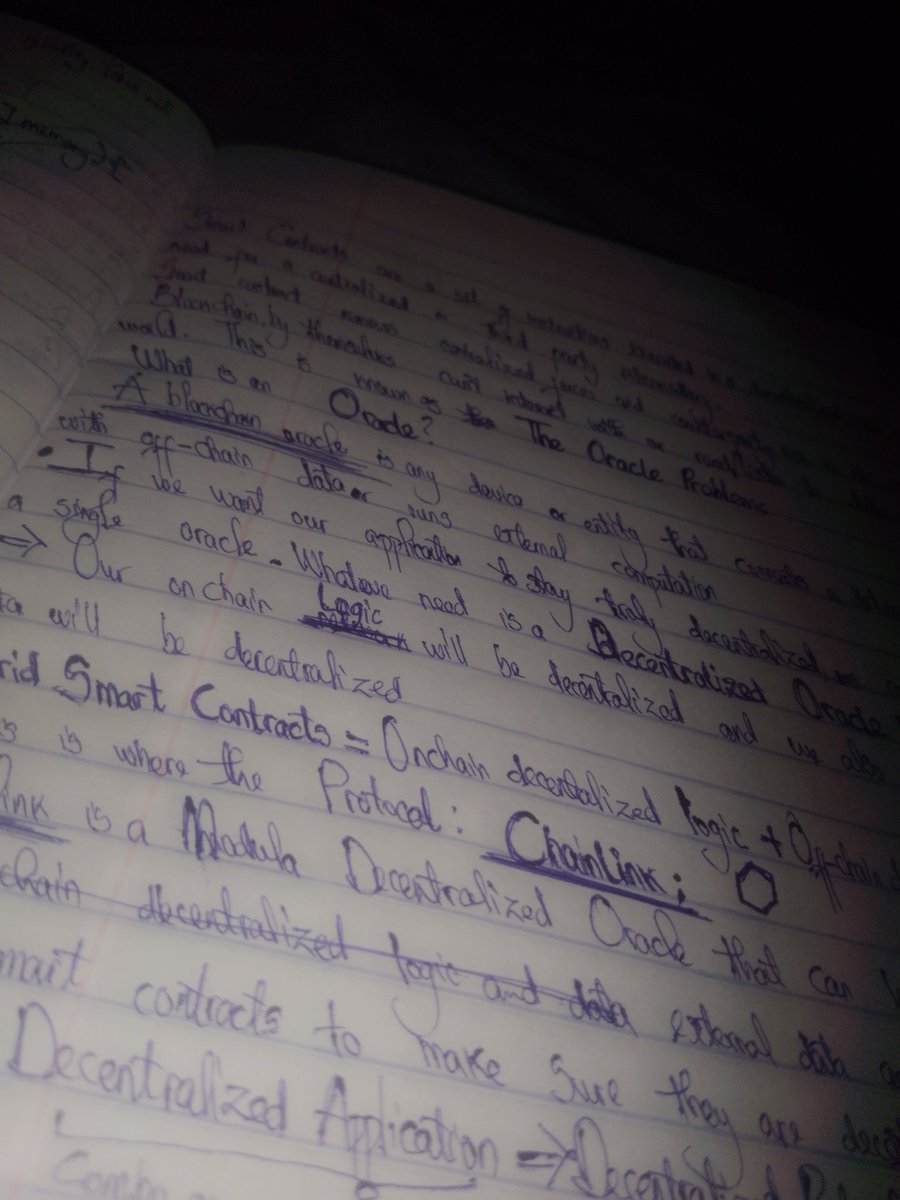 I memory
Smart Contracts are a set of instructions executed in a
need for a centralized or third party intermediary.
Smart contract removes centralized forces and counterparty
Blockchain, by themselves can't interact with or read/listen to
world. This is known as The Oracle Problems
What is an Oracle?
A blockchain oracle is any device or entity that connects a
with off-chain data or runs external computation
• If we want our application to stay truly decentralized, we
a single oracle. Whatwe need is a Decentralized Oracle
⇒ Our onchain Logic will be decentralized and we also
ta will be decentralized
rid Smart Contracts = Onchain decentralized logic + Off-chain
s is where the Protocol: ChainLink;
link is a Modula Decentralized Oracle that can
chain decentralized logic and data external data
mart contracts to make sure they are dece
Decentralized Application ⇒ Decentrali